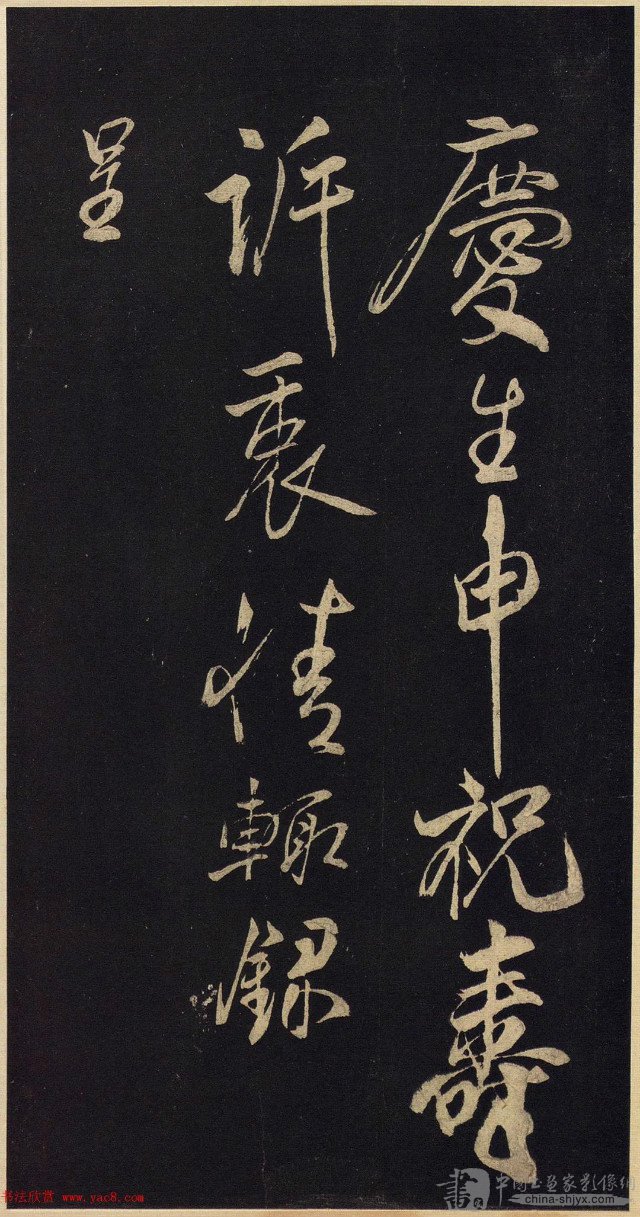 慶生申祝壽
訴衷情輙録
呈
书法欣赏 www.yac8.com
中國書畫家影像網
china-shjyx.com